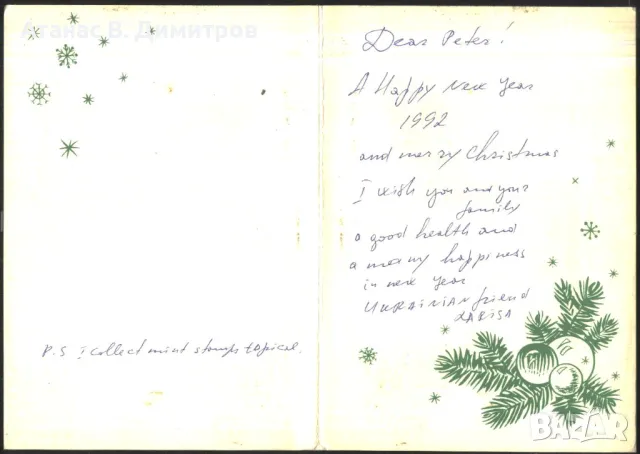 Атанас В. Димитров
Dear Peter!
A Happy New Year
1992
and merry Christmas
I wish you and your
family
a good health and
a many happiness
in new year
UKRAINIAN friend
LARISA
P.S I collect mint stamps topical.
BAZAR